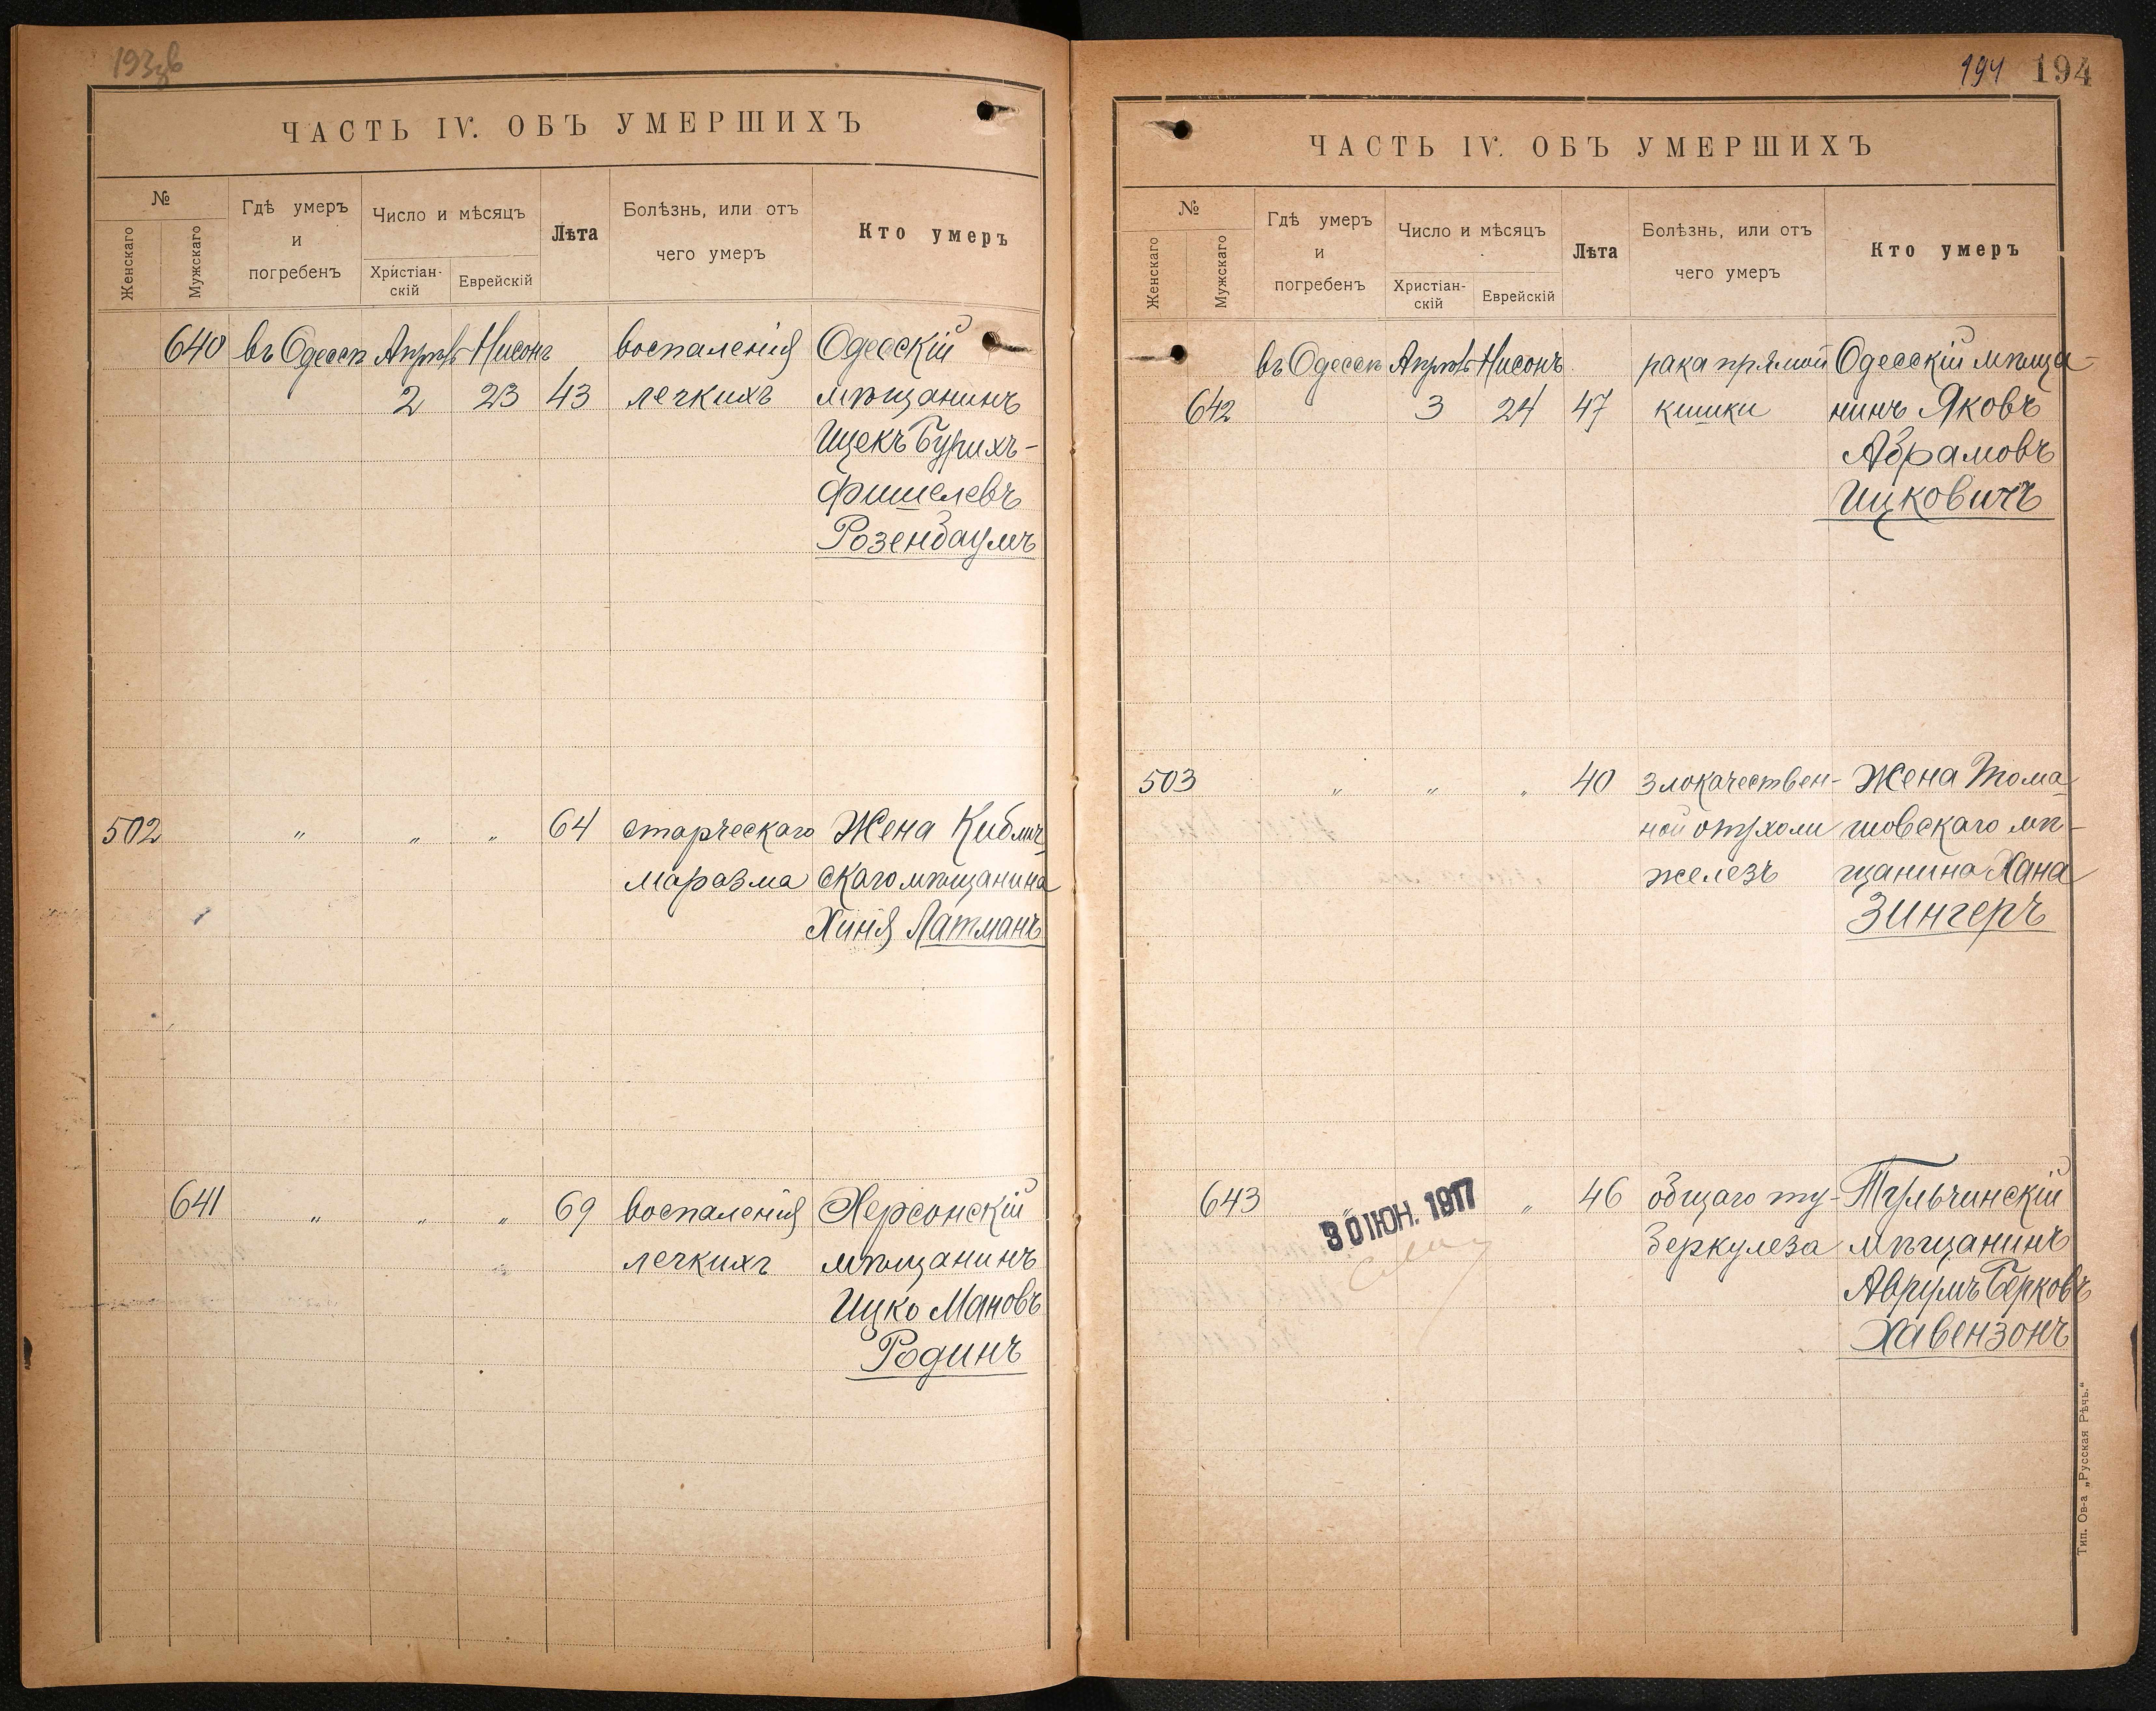 193 зв
ЧАСТЬ IV. ОБЪ УМЕРШИХЪ
№
Женскаго
Мужскаго
Гдѣ умеръ
и
погребенъ
Число и мѣсяцъ
Христіан-
скій
Еврейскій
Лѣта
Болѣзнь, или отъ
чего умеръ
Кто умеръ
640 въ Одессѣ Апрѣль Нисонъ воспаленія Одесскій
2 23 43 легкихъ мѣщанинъ
Ицекъ Бурихъ-
Фишелевъ
Розенбаумъ
502 " " " 64 старческаго Жена Кублич-
маразма скаго мѣщанина
Хиня Латманъ
641 " " " 69 воспаленія Херсонскій
легкихъ мѣщанинъ
Ицко Мановъ
Родинъ
194 194
ЧАСТЬ IV. ОБЪ УМЕРШИХЪ
№
Женскаго
Мужскаго
Гдѣ умеръ
и
погребенъ
Число и мѣсяцъ
Христіан-
скій
Еврейскій
Лѣта
Болѣзнь, или отъ
чего умеръ
Кто умеръ
въ Одессѣ Апрѣль Нисонъ рака прямой Одесскій мѣща-
642 3 24 47 кишки нинъ Яковъ
Абрамовъ
Ицковичъ
503 " " " 40 злокачествен- Жена Тома-
ной опухоли шовскаго мѣ-
железъ щанина Хана
Зингеръ
643 " 30 ІЮН. 1917 " 46 общаго ту- Тульчинскій
беркулеза мѣщанинъ
Аврумъ Берковъ
Хавензонъ
Тип. Ов-а „Русская Рѣчь."